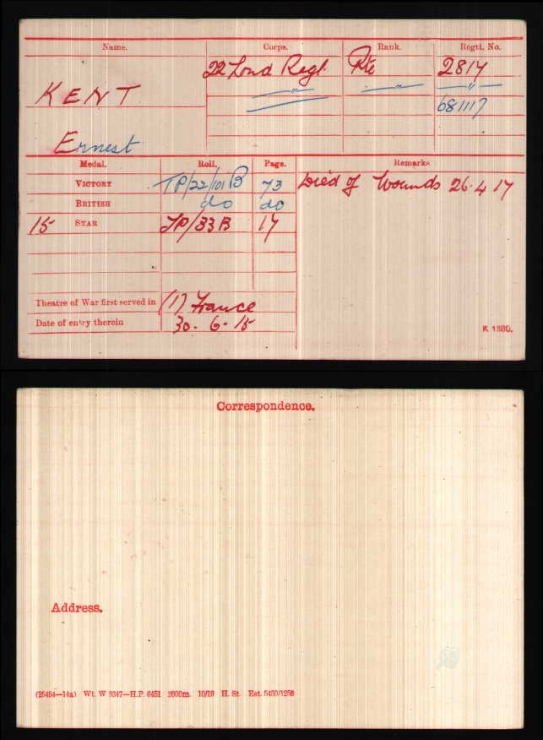 Name. Corps. Rank. Regtl. No.
22 Lond Regt. Pte 2814
KENT
681117
Ernest
Medal. Roll. Page. Remarks
VICTORY TP/22/101 B 73 Died of Wounds 26.4.17
BRITISH do do
15 STAR TP/33 B 17
Theatre of War first served in (1) France
Date of entry therein 30-6-15
K 1380.
Correspondence.
Address.
Wt. W 5347—H.P. 6451 2000m. 10/19 H. St.